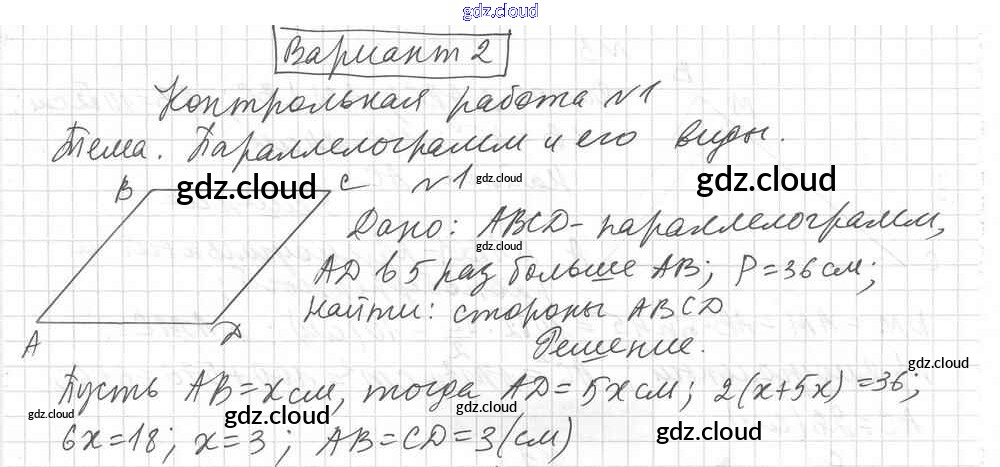 gdz.cloud
Вариант 2
Контрольная работа №1
Тема. Параллелограмм и его виды.
B gdz.cloud C №1 gdz.cloud gdz.cloud
Дано: ABCD - параллелограмм,
gdz.cloud
AD в 5 раз больше AB; P=36 см;
Найти: стороны ABCD
A D Решение.
gdz.cloud
Пусть AB=x см, тогда AD=5x см; 2(x+5x)=36;
gdz.cloud gdz.cloud gdz.cloud gdz.cloud
6x=18; x=3; AB=CD=3(см)
gdz.cloud gdz.cloud